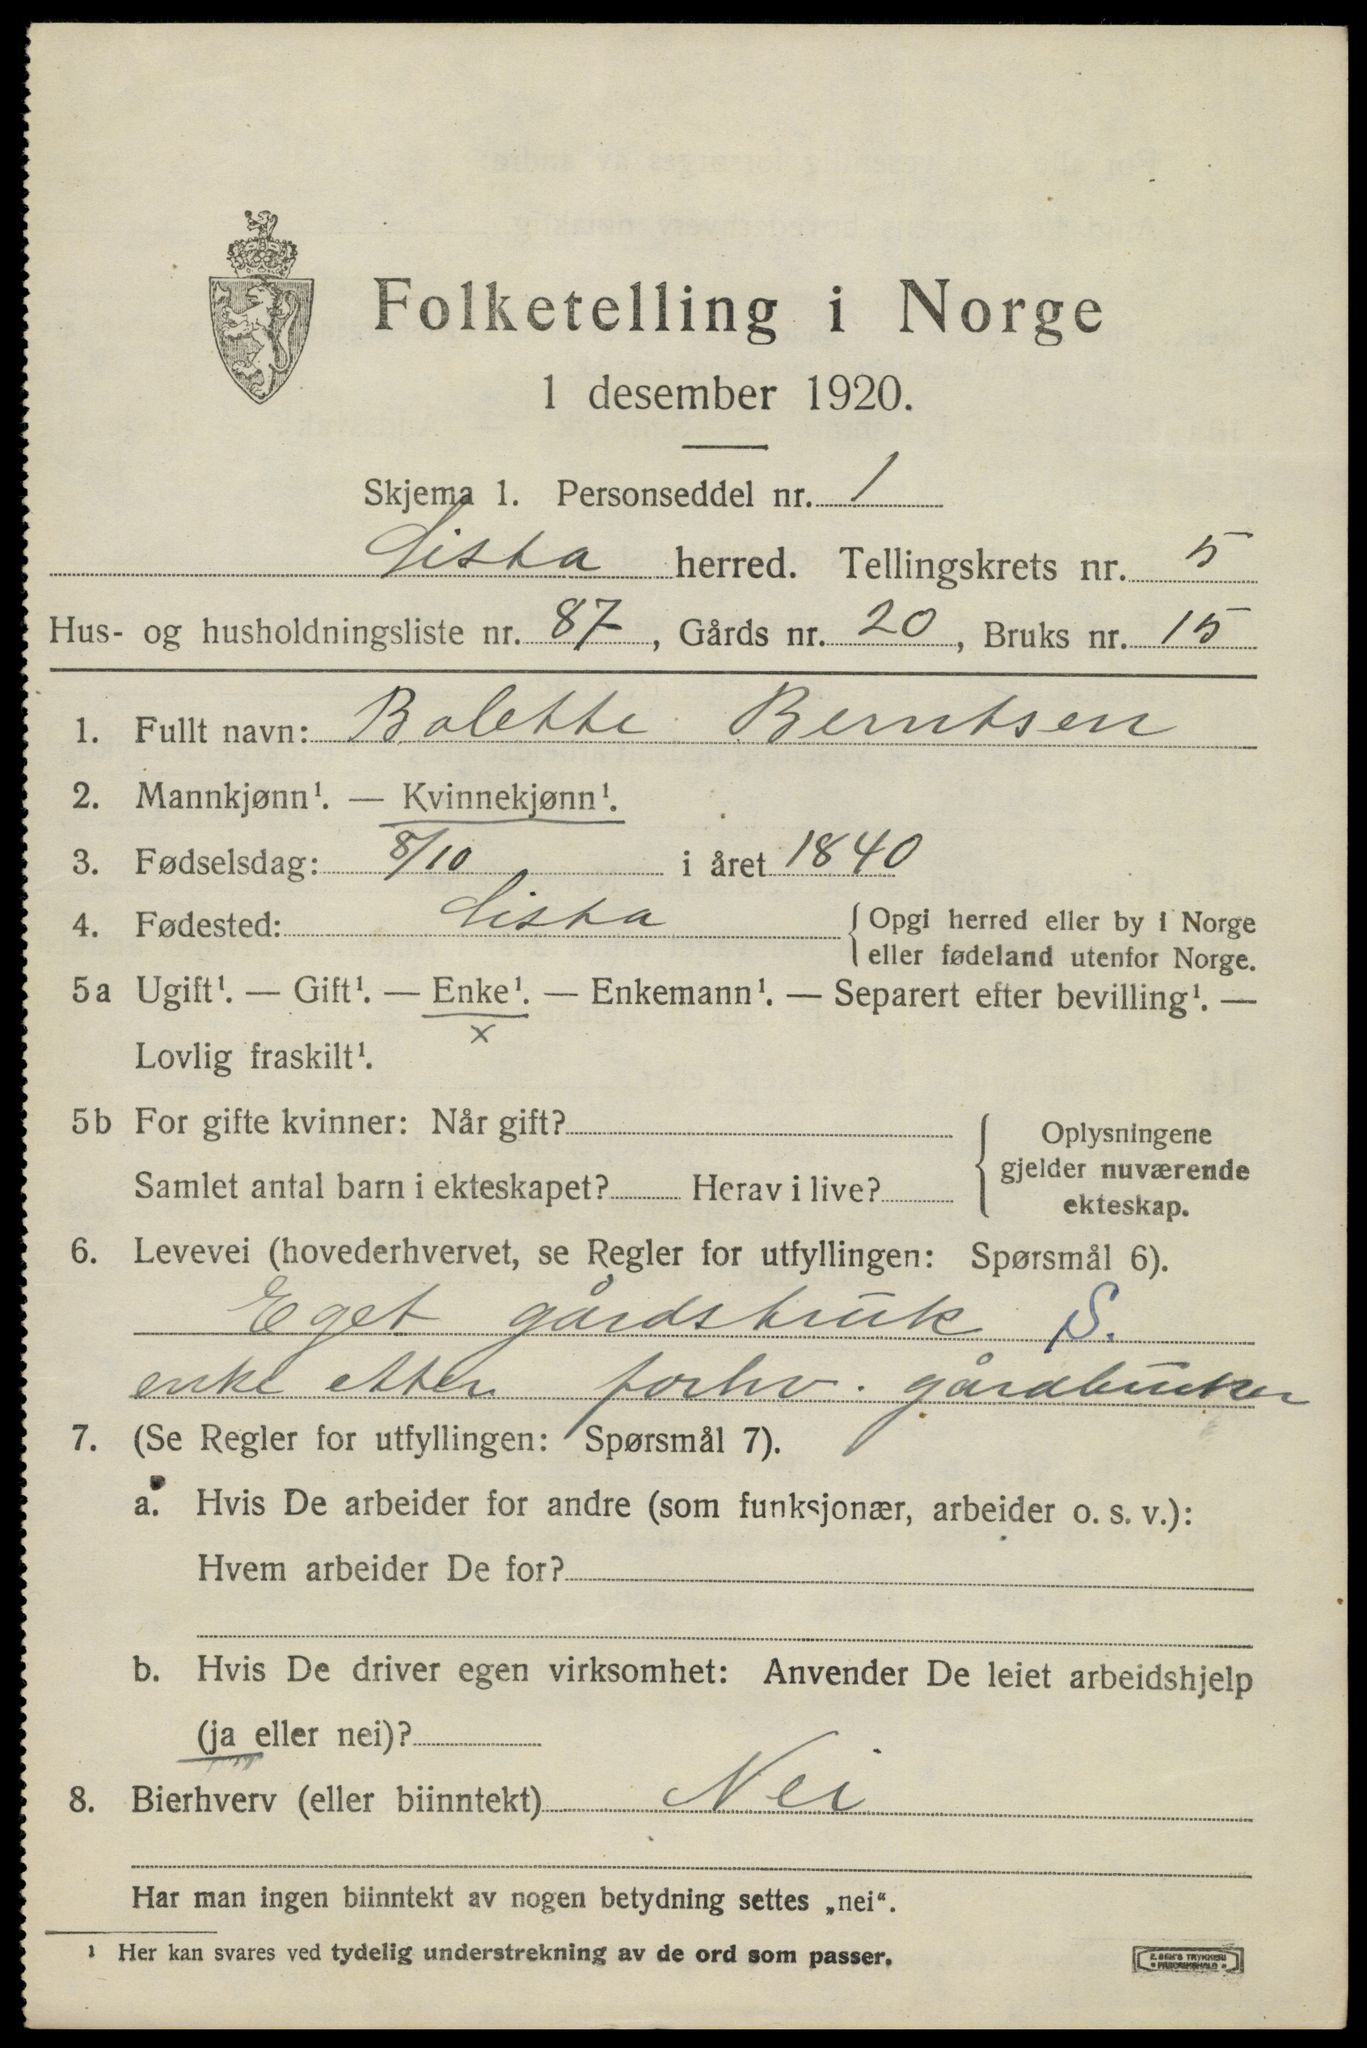 Folketelling i Norge
1 desember 1920.
Skjema 1. Personseddel nr. 1
Lista herred. Tellingskrets nr. 5
Hus- og husholdningsliste nr. 87, Gårds nr. 20, Bruks nr. 15
1. Fullt navn: Bolette Berntsen
2. Mannkjønn¹. — Kvinnekjønn¹.
3. Fødselsdag: 8/10 i året 1840
4. Fødested: Lista { Opgi herred eller by i Norge
eller fødeland utenfor Norge.
5a Ugift¹. — Gift¹. — Enke¹. — Enkemann¹. — Separert efter bevilling¹. —
x
Lovlig fraskilt¹.
5b For gifte kvinner: Når gift?
Samlet antal barn i ekteskapet? Herav i live?
{ Oplysningene
gjelder nuværende
ekteskap.
6. Levevei (hovederhvervet, se Regler for utfyllingen: Spørsmål 6).
Eget gårdsbruk S.
enke etter forhv. gårdbruker
7. (Se Regler for utfyllingen: Spørsmål 7).
a. Hvis De arbeider for andre (som funksjonær, arbeider o. s. v.):
Hvem arbeider De for?
b. Hvis De driver egen virksomhet: Anvender De leiet arbeidshjelp
(ja eller nei)?
8. Bierhverv (eller biinntekt) Nei
Har man ingen biinntekt av nogen betydning settes „nei“.
¹ Her kan svares ved tydelig understrekning av de ord som passer.
E. SEM'S TRYKKERI
• FREDRIKSHALD •